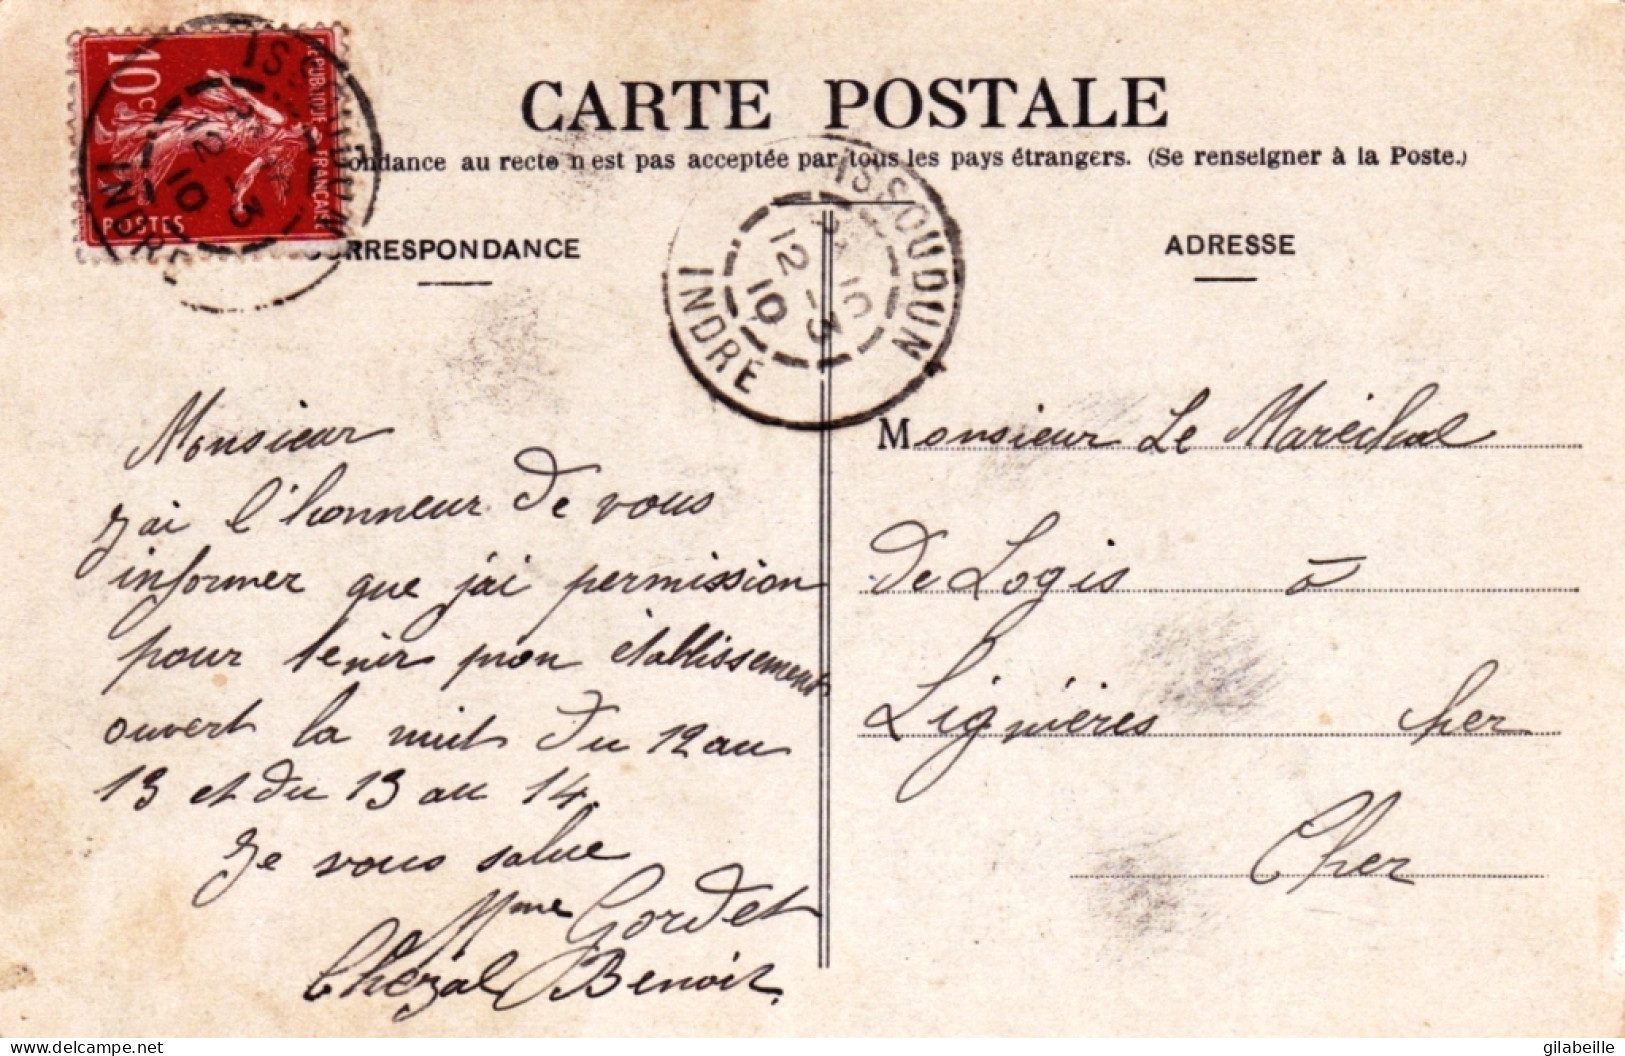 10 c
REPUBLIQUE FRANÇAISE
POSTES
ISSOUDUN
12 - 3
10
INDRE
CARTE POSTALE
ondance au recto n'est pas acceptée par tous les pays étrangers. (Se renseigner à la Poste.)
ISSOUDUN
12 - 3
10
INDRE
RRESPONDANCE
Monsieur
J'ai l'honneur de vous
informer que j'ai permission
pour tenir mon établissement
ouvert la nuit du 12 au
13 et du 13 au 14.
Je vous salue
Mme Gordet
Chezal Benoit.
ADRESSE
Monsieur Le Maréchal
de Logis à
Lignières cher
Cher
delcampe.net
gilabeille